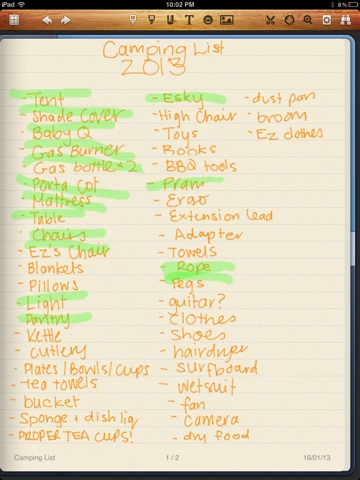 iPad
10:02 PM
6%
Camping List
2013
- Tent
- Shade Cover
- Baby Q
- Gas Burner
Gas bottle x 2
- Porta Cot
- Mattress
- Table
- Chairs
- Ez's Chair
- Blankets
- Pillows
- Light
- Pantry
- Kettle
- cutlery
- Plates / Bowls / Cups
- tea towels
- bucket
- Sponge + dish liq
- PROPER TEA CUPS!
- Esky
- High Chair
- Toys
- Books
- BBQ tools
- Pram
- Ergo
- Extension lead
- Adapter
- Towels
- Rope
- Pegs
- guitar?
- clothes
- shoes
- hairdryer
- surfboard
- wetsuit
- fan
- camera
- dry food
- dust pan
- broom
- Ez clothes
Camping List
1 / 2
16/01/13